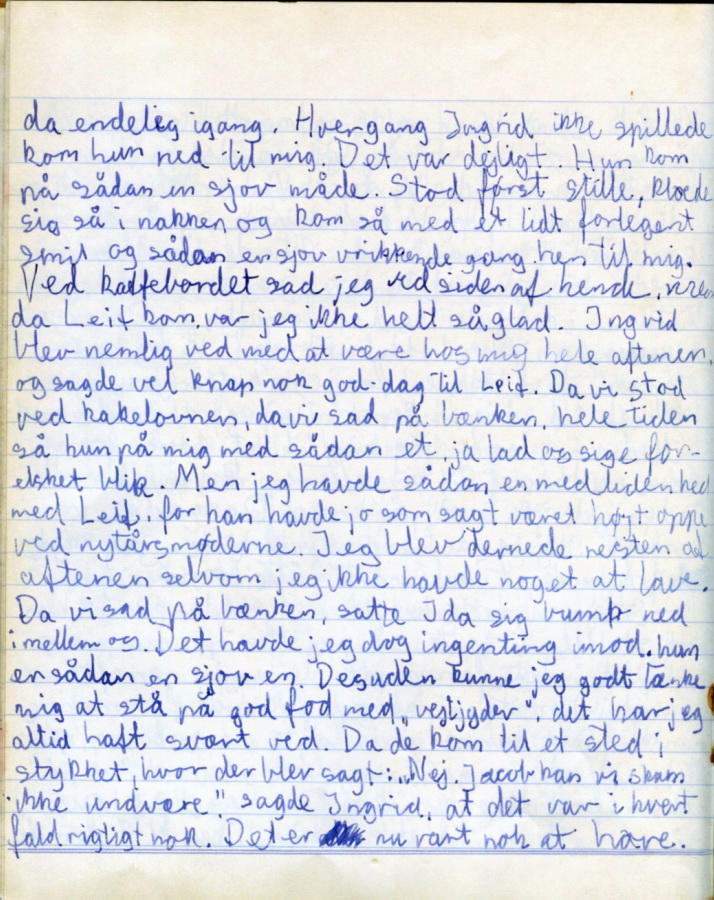 da endelig igang. Hvergang Ingrid ikke spillede
kom hun ned til mig. Det var dejligt. Hun kom
på sådan en sjov måde. Stod først stille, kløede
sig så i nakken og kom så med et lidt forlegent
smil og sådan en sjov vrikkende gang hen til mig.
Ved kaffebordet sad jeg ved siden af hende,
da Leif kom, var jeg ikke helt så glad. Ingrid
blev nemlig ved med at være hos mig hele aftenen,
og sagde vel knap nok god-dag til Leif. Da vi stod
ved kakelovnen, da vi sad på bænken, hele tiden
så hun på mig med sådan et, ja lad os sige for-
elsket blik. Men jeg havde sådan en medlidenhed
med Leif, for han havde jo som sagt været højt oppe
ved nytårsmøderne. Jeg blev dernede resten af
aftenen selvom jeg ikke havde noget at lave.
Da vi sad på bænken, satte Ida sig bump ned
imellem os. Det havde jeg dog ingenting imod. hun
er sådan en sjov en. Desuden kunne jeg godt tænke
mig at stå på god fod med "vestjyder". det har jeg
altid haft svært ved. Da de kom til et sted i
stykket, hvor der blev sagt: "Nej. Jacob kan vi skam
ikke undvære." sagde Ingrid, at det var i hvert
fald rigtigt nok. Det er nu rart nok at høre.